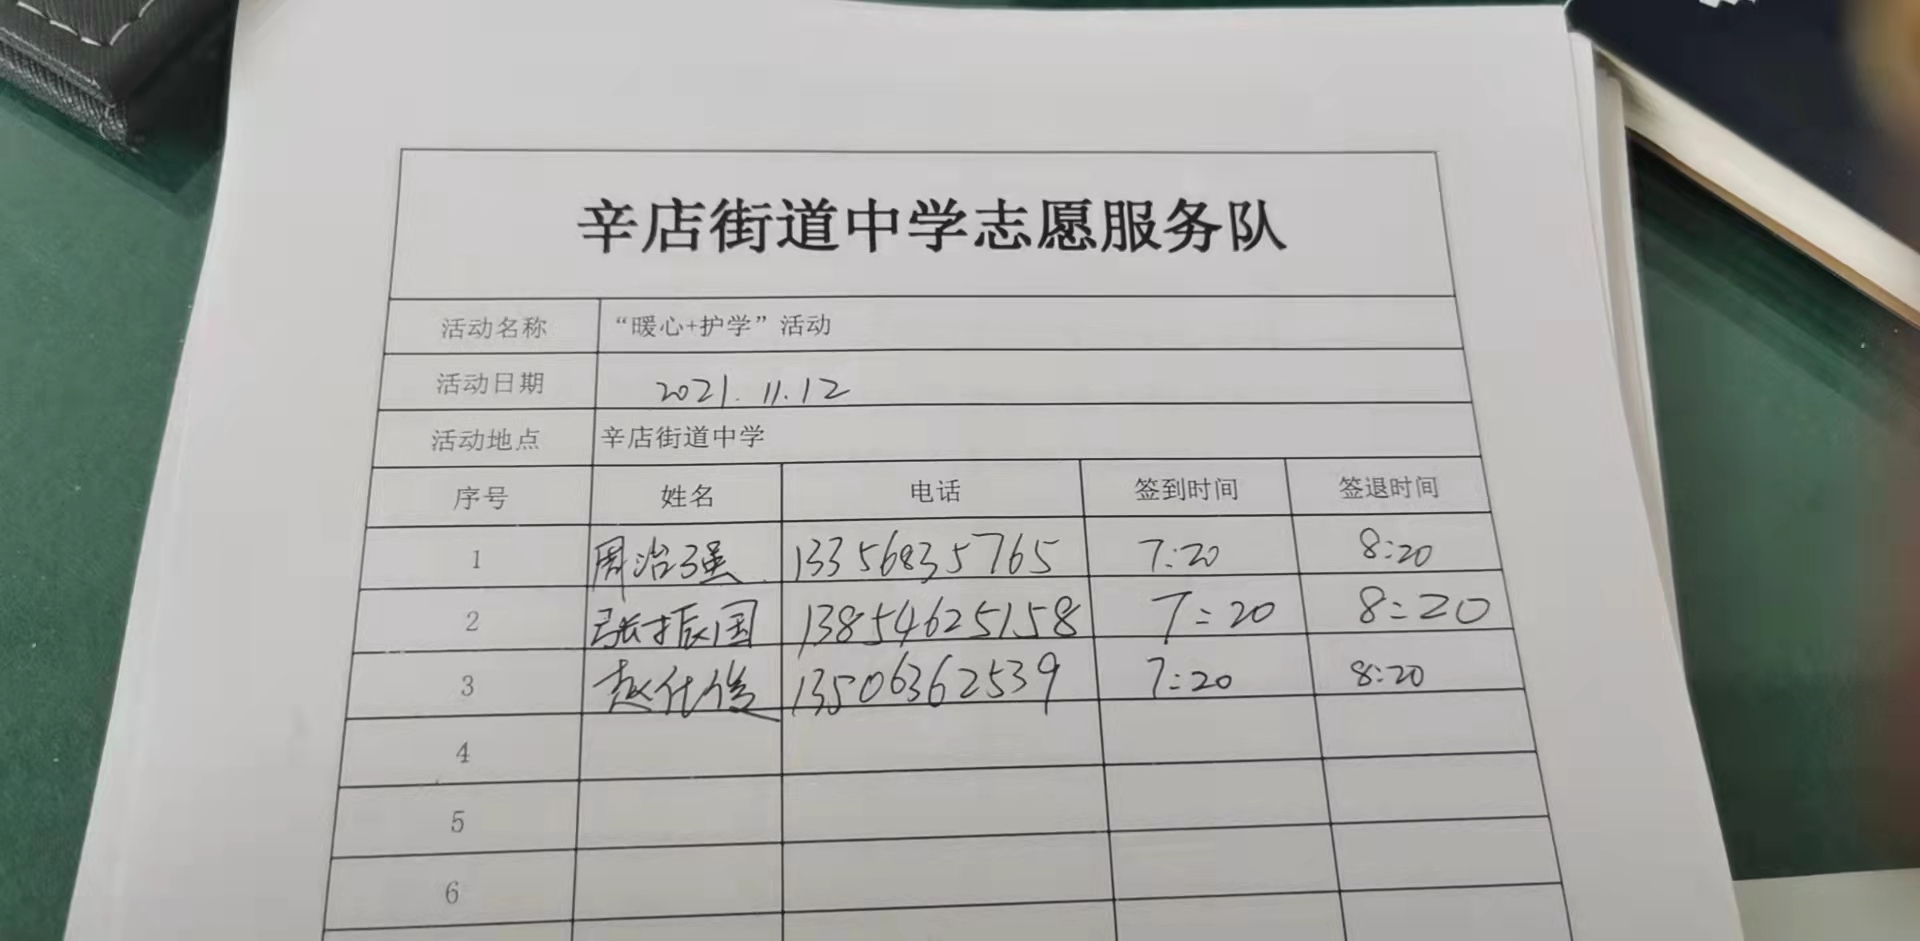 辛店街道中学志愿服务队
活动名称 “暖心+护学”活动
活动日期 2021.11.12
活动地点 辛店街道中学
序号 姓名 电话 签到时间 签退时间
1 周治强 13356835765 7:20 8:20
2 张振国 13854625158 7:20 8:20
3 赵化俊 13506362539 7:20 8:20
4
5
6